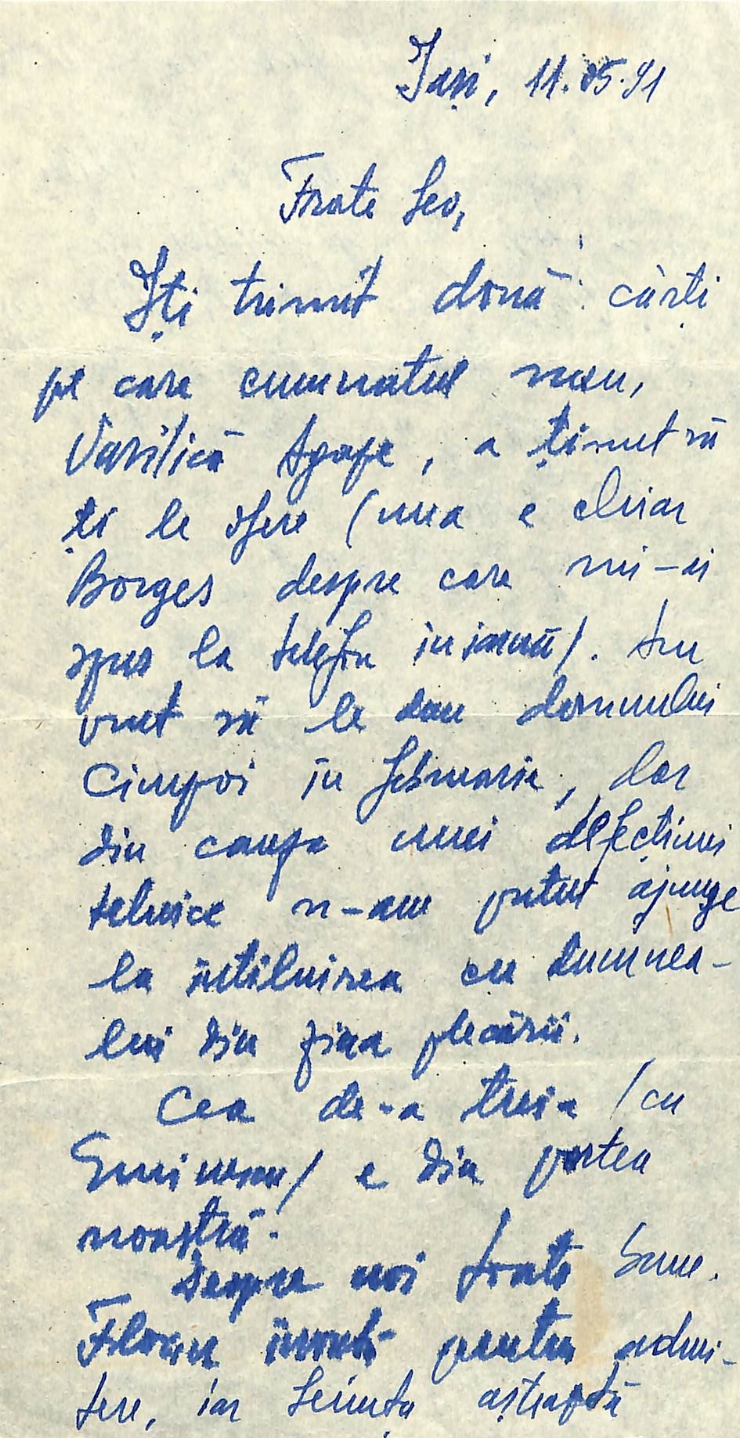 Iași, 11.05.91
Frate Leo,
Îți trimit două cărți
pe care cumnatul meu,
Vasilică Agape, a ținut să
ți le ofere (una e chiar
Borges despre care mi-ai
spus la telefon în iarnă). Am
vrut să le dau domnului
Cimpoi în februarie, dar
din cauza unei defecțiuni
tehnice n-am putut ajunge
la întîlnirea cu dumnea-
lui din ziua plecării.
Cea de-a treia (cu
Eminescu) e din partea
noastră.
Despre noi toate bune.
Florin învață pentru admi-
tere, iar așteaptă